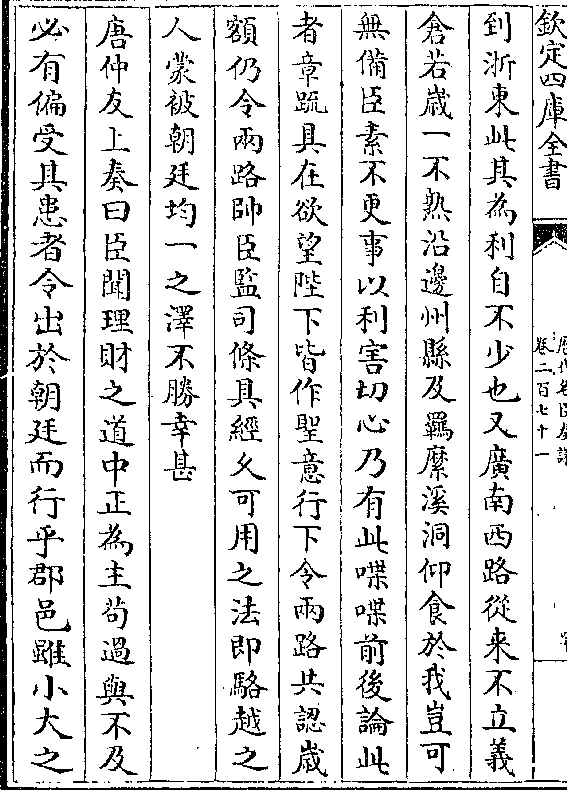 欽定四庫全書
卷二百七十一
到浙東此其為利自不少也又廣南西路從来不立義
倉若歳一不熟沿邊州縣及羈縻溪洞仰食於我豈可
無備臣素不更事以利害切心乃有此喋喋前後論此
者章䟽具在欲望陛下皆作聖意行下令兩路共認歳
額仍令兩路帥臣監司條具經乆可用之法即駱越之
人蒙被朝廷均一之澤不勝幸甚
唐仲友上奏曰臣聞理財之道中正為主茍過與不及
必有偏受其患者令出於朝廷而行乎郡邑雖小大之